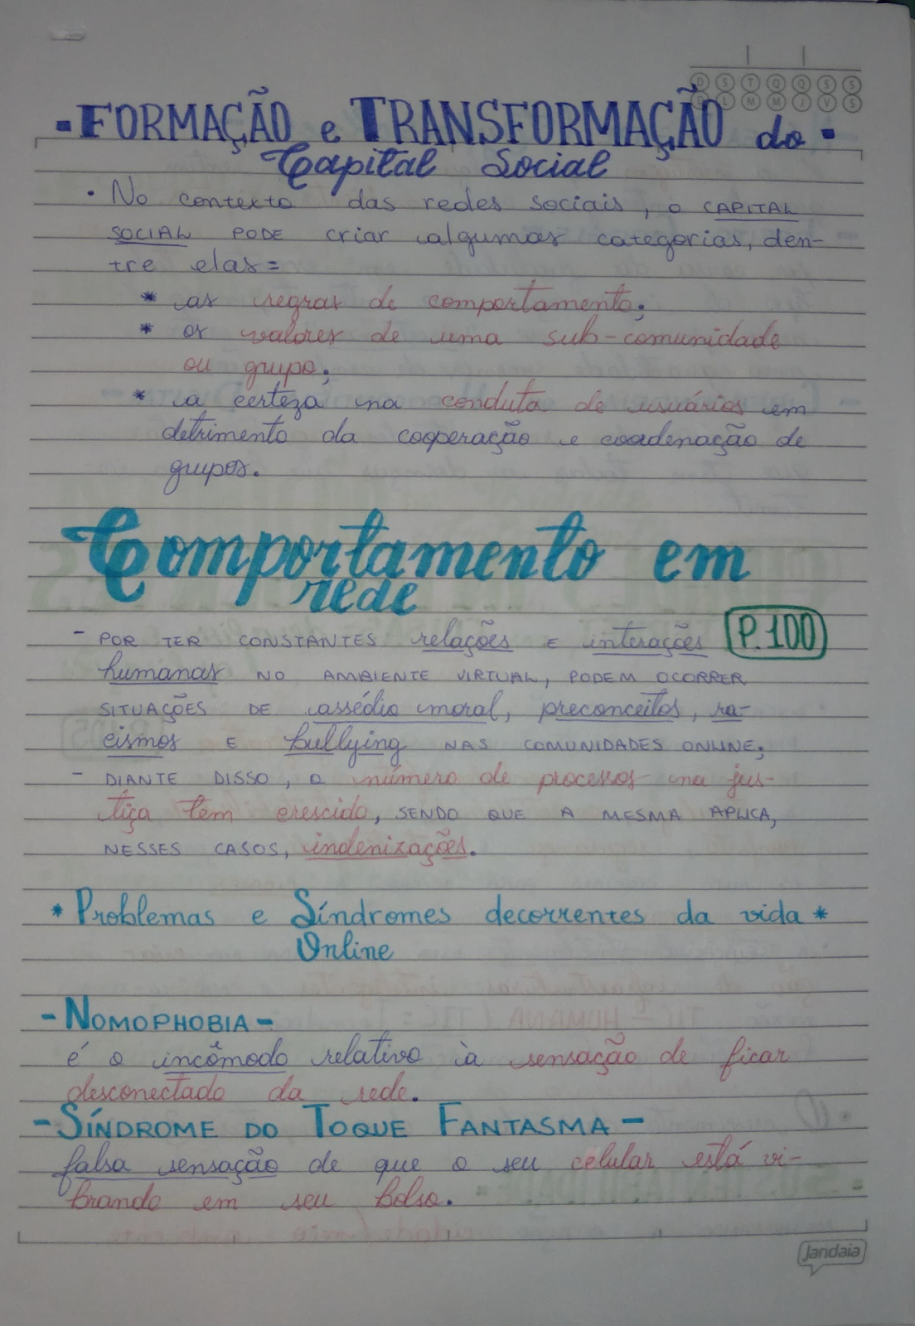 D S T Q Q S S
D L M M J V S
- FORMAÇÃO e TRANSFORMAÇÃO do -
Capital Social
• No contexto das redes sociais, o CAPITAL
SOCIAL PODE criar algumas categorias, den-
tre elas=
* as regras de comportamento;
* os valores de uma sub-comunidade
ou grupo;
* a certeza na conduta de usuários em
detrimento da cooperação e coordenação de
grupos.
Comportamento em
rede
- POR TER CONSTANTES relações E interações P.100
humanas NO AMBIENTE VIRTUAL, PODEM OCORRER
SITUAÇÕES DE assédio moral, preconceitos, ra-
cismos E bullying NAS COMUNIDADES ONLINE;
- DIANTE DISSO, O número de processos na jus-
tiça têm crescido, SENDO QUE A MESMA APLICA,
NESSES CASOS, indenizações.
* Problemas e Síndromes decorrentes da vida *
Online
- NOMOPHOBIA -
é o incômodo relativo à sensação de ficar
desconectado da rede.
- SÍNDROME DO TOQUE FANTASMA -
falsa sensação de que o seu celular está vi-
brando em seu bolso.
Jandaia